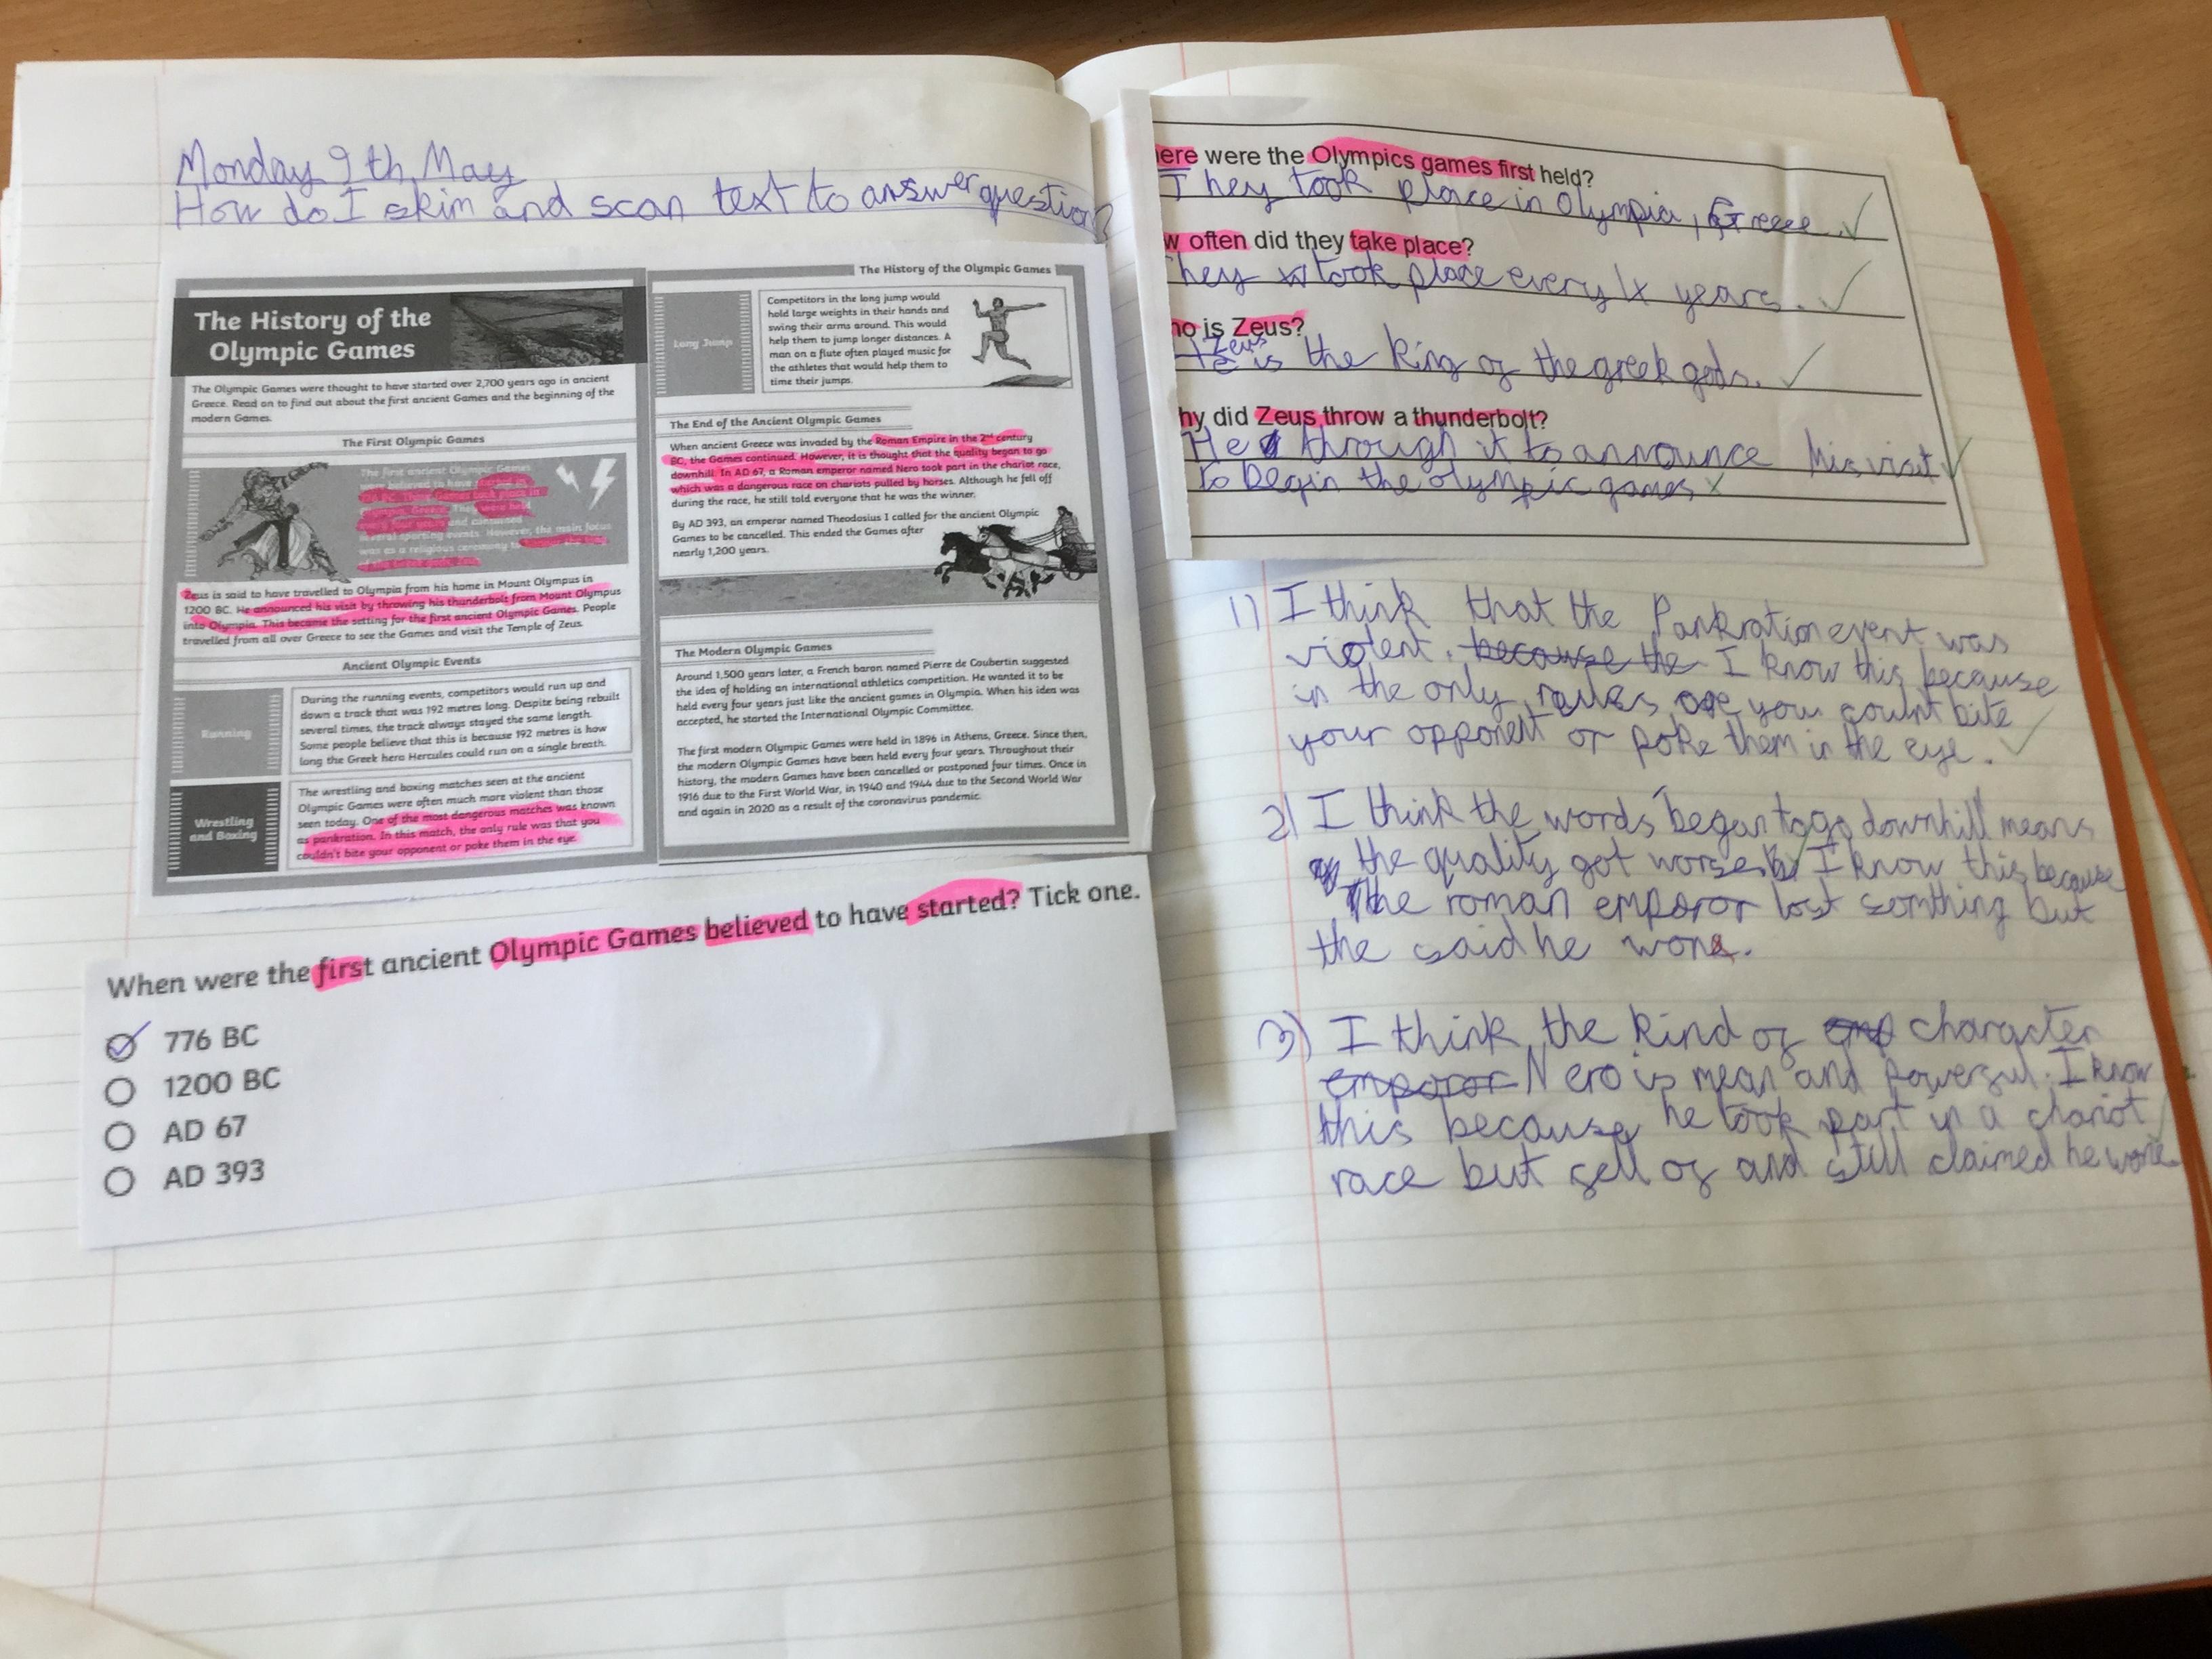 Monday 9th May
How do I skim and scan text to answer question?
The History of the
Olympic Games
The Olympic Games were thought to have started over 2,700 years ago in ancient
Greece. Read on to find out about the first ancient Games and the beginning of the
modern Games.
The First Olympic Games
The first ancient Olympic Games
were believed to have started in
776 BC. These Games took place in
Olympia, Greece. They were held
every four years and contained
several sporting events. However, the main focus
was as a religious ceremony to
Zeus is said to have travelled to Olympia from his home in Mount Olympus in
1200 BC. He announced his visit by throwing his thunderbolt from Mount Olympus
into Olympia. This became the setting for the first ancient Olympic Games. People
travelled from all over Greece to see the Games and visit the Temple of Zeus.
Ancient Olympic Events
Running
During the running events, competitors would run up and
down a track that was 192 metres long. Despite being rebuilt
several times, the track always stayed the same length.
Some people believe that this is because 192 metres is how
long the Greek hero Hercules could run on a single breath.
Wrestling
and Boxing
The wrestling and boxing matches seen at the ancient
Olympic Games were often much more violent than those
seen today. One of the most dangerous matches was known
as pankration. In this match, the only rule was that you
couldn't bite your opponent or poke them in the eye.
The History of the Olympic Games
Long Jump
Competitors in the long jump would
hold large weights in their hands and
swing their arms around. This would
help them to jump longer distances. A
man on a flute often played music for
the athletes that would help them to
time their jumps.
The End of the Ancient Olympic Games
When ancient Greece was invaded by the Roman Empire in the 2nd century
BC, the Games continued. However, it is thought that the quality began to go
downhill. In AD 67, a Roman emperor named Nero took part in the chariot race,
which was a dangerous race on chariots pulled by horses. Although he fell off
during the race, he still told everyone that he was the winner.
By AD 393, an emperor named Theodosius I called for the ancient Olympic
Games to be cancelled. This ended the Games after
nearly 1,200 years.
The Modern Olympic Games
Around 1,500 years later, a French baron named Pierre de Coubertin suggested
the idea of holding an international athletics competition. He wanted it to be
held every four years just like the ancient games in Olympia. When his idea was
accepted, he started the International Olympic Committee.
The first modern Olympic Games were held in 1896 in Athens, Greece. Since then,
the modern Olympic Games have been held every four years. Throughout their
history, the modern Games have been cancelled or postponed four times. Once in
1916 due to the First World War, in 1940 and 1944 due to the Second World War
and again in 2020 as a result of the coronavirus pandemic.
When were the first ancient Olympic Games believed to have started? Tick one.
776 BC
1200 BC
AD 67
AD 393
ere were the Olympics games first held?
They took place in Olympia, Greece.
w often did they take place?
They took place every 4 years.
ho is Zeus?
Zeus
He is the king of the greek gods.
hy did Zeus throw a thunderbolt?
He through it to announce his visit
to begin the olympic games
1) I think that the Pankration event was
violent. because the I know this because
in the only rules are you count bite
your opponent or poke them in the eye.
2) I think the words "began to go downhill" means
the quality got worse I know this because
The roman emporor lost somthing but
the said he won.
3) I think the kind of emp character
emporor Nero is mean and powerful. I know
this because he took part in a chariot
race but fell of and still claimed he wone.